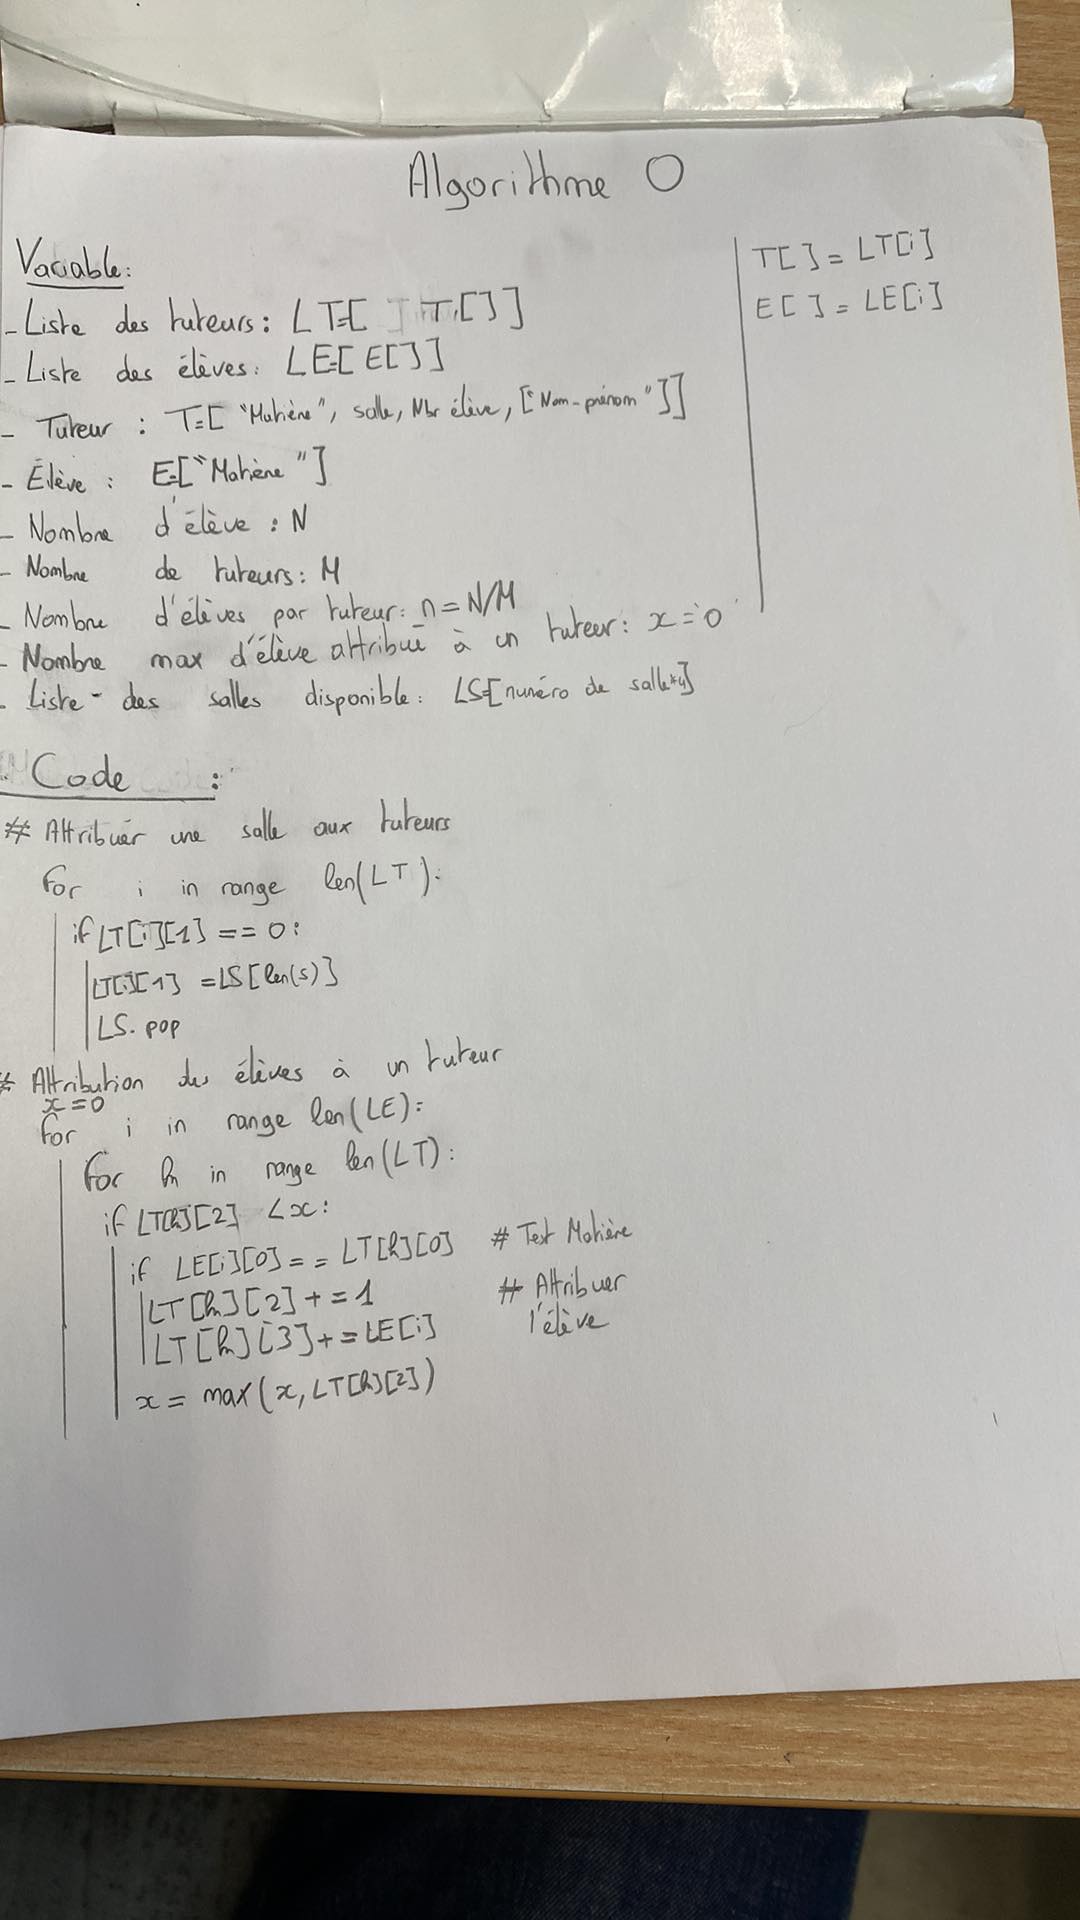 Algorithme 0
Variable:
- Liste des tuteurs: LT=[ T[]]
- Liste des élèves: LE=[E[]]
- Tuteur : T=["Matière", salle, Nbr élève, ["Nom-prénom"]]
- Élève : E=["Matière"]
- Nombre d'élève : N
- Nombre de tuteurs: M
- Nombre d'élèves par tuteur: n = N/M
- Nombre max d'élève attribué à un tuteur: x = 0
- Liste des salles disponible: LS=[numéro de salle*4]
T[] = LT[i]
E[] = LE[i]
Code :
# Attribuer une salle aux tuteurs
For i in range len(LT):
if LT[i][1] == 0:
LT[i][1] = LS[len(s)]
LS.pop
# Attribution des élèves à un tuteur
x=0
For i in range len(LE):
For h in range len(LT):
if LT[h][2] < x:
if LE[i][0] == LT[h][0] # Test Matière
LT[h][2] += 1 # Attribuer
LT[h][3] += LE[i] l'élève
x = max(x, LT[h][2])